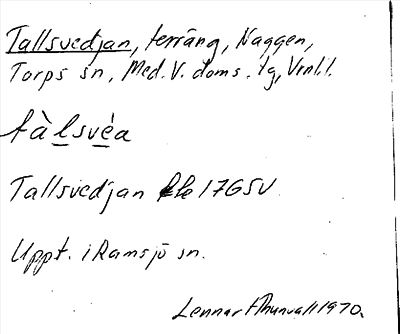 Tallsvedjan, terräng, Naggen,
Torps sn, Med. V. doms. tg, Vnl.l.
tàl̲své̲a
Tallsvedjan 17G5V
Uppt. i Ramsjö sn.
Lennart Thunvall 1970.